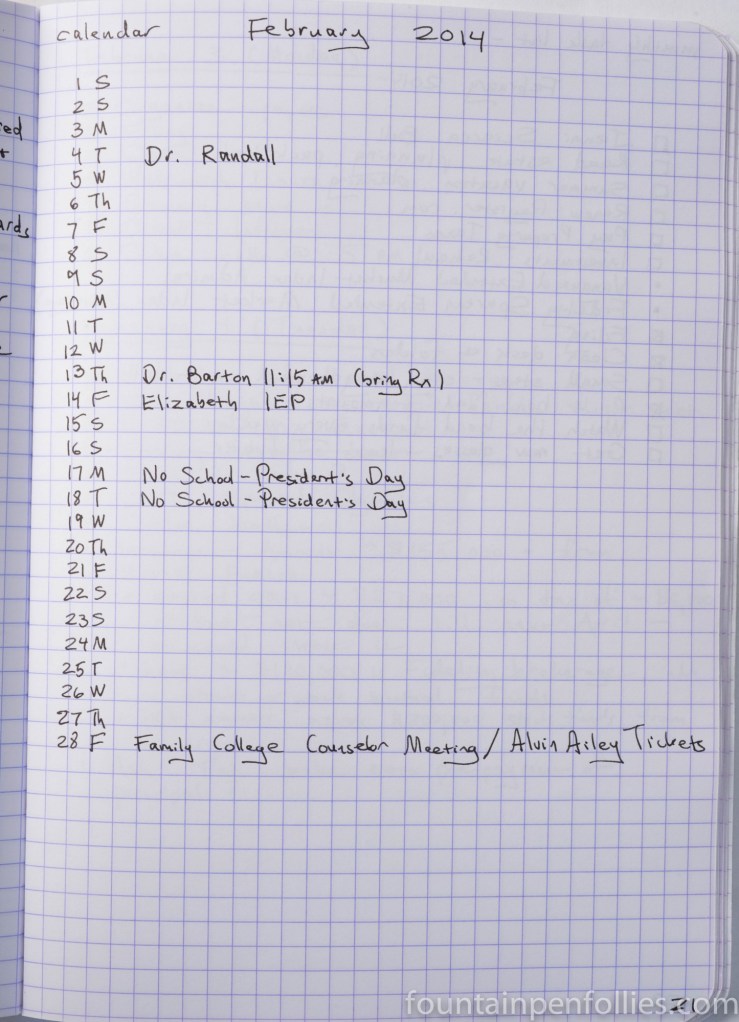 calendar February 2014
1 S
2 S
3 M
4 T Dr. Randall
5 W
6 Th
7 F
8 S
9 S
10 M
11 T
12 W
13 Th Dr. Barton 11:15 AM (bring Rx)
14 F Elizabeth IEP
15 S
16 S
17 M No School - President's Day
18 T No School - President's Day
19 W
20 Th
21 F
22 S
23 S
24 M
25 T
26 W
27 Th
28 F Family College Counselor Meeting / Alvin Ailey Tickets
fountainpenfollies.com